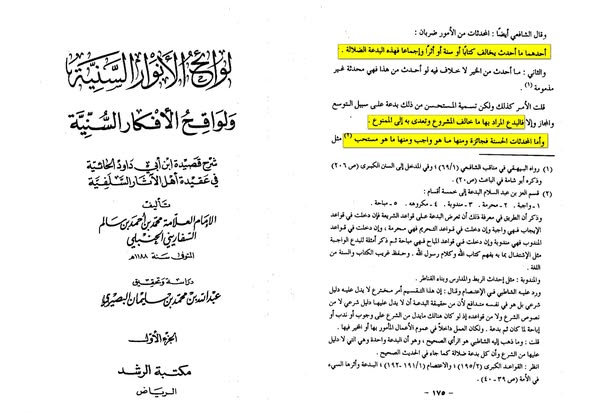 لوائح الأنوار السنية
ولواقح الأفكار السنية
شرح قصيدة ابن أبي داود الحائية
في عقيدة أهل الآثار السلفية
تأليف
الإمام العلامة محمد بن أحمد بن سالم
السفاريني الحنبلي
المتوفى سنة ١١٨٨هـ
دراسة وتحقيق
عبدالله بن محمد بن سليمان البصيري
الجزء الأول
مكتبة الرشد
الرياض
وقال الشافعي أيضًا : المحدثات من الأمور ضربان :
أحدهما ما أحدث يخالف كتابًا أو سنة أو أثرًا وإجماعا فهذه البدعة الضلالة .
والثاني : ما أحدث من الخير لا خلاف فيه لو أحدث من هذا فهي محدثة غير
مذمومة (١)
قلت الأمر كذلك ولكن تسمية المستحسن من ذلك بدعة على سبيل التوسع
والمجاز وإلا فالبدع المراد بها ما خالف المشروع وتعدى به إلى الممنوع .
وأما المحدثات الحسنة فجائزة ومنها ما هو واجب ومنها ما هو مستحب (٢) مثل
(١) رواه البيهقي في مناقب الشافعي (٤٦٩/١) وفي المدخل إلى السنن الكبرى (ص ٢٠٦)
وذكره أبو شامة في الباعث (ص ٢٠)
(٢) قسم العز بن عبد السلام البدعة إلى خمسة أقسام :
١ - واجبة . ٢ - محرمة . ٣ - مندوبة . ٤ - مكروهة . ٥ - مباحة .
وذكر أن الطريق في معرفة ذلك أن تعرض البدعة على قواعد الشريعة فإن دخلت في قواعد
الإيجاب فهي واجبة وإن دخلت في قواعد التحريم فهي محرمة ، وإن دخلت في قواعد
المندوب فهي مندوبة وإن دخلت في قواعد المباح فهي مباحة ثم ذكر أمثلة للبدع الواجبة
مثل الإشتغال بما به يفهم كتاب الله وكلام رسول الله . وحفظ غريب الكتاب والسنة من
اللغة .
والمندوبة : مثل إحداث الربط والمدارس وبناء القناطر .
ورد عليه الشاطبي في الإعتصام وقال : إن هذا التقسيم أمر مخترع لا يدل عليه دليل
شرعي بل هو في نفسه متدافع لأن من حقيقة البدعة أن لا يدل عليها دليل شرعي لا من
نصوص الشرع ولا من قواعده إذ لو كان هنالك مايدل من الشرع على وجوب أو ندب أو
إباحة لما كان ثم بدعة . ولكان العمل داخلاً في عموم الأعمال المأمور بها أو المخير فيها .
قلت : وما ذهب إليه الشاطبي هو الرأي الصحيح ، وهو أن البدعة واحدة وهي التي لا دليل
عليها من الشرع وأن كل بدعة ضلالة كما جاء في الحديث الصحيح .
انظر : القواعد الكبرى (١٩٥/٢) والاعتصام (١٩١/١-١٩٢) ، البدعة وأثرها السيء
في الأمة (ص ٣٩-٤٠) .
- ١٧٥ -